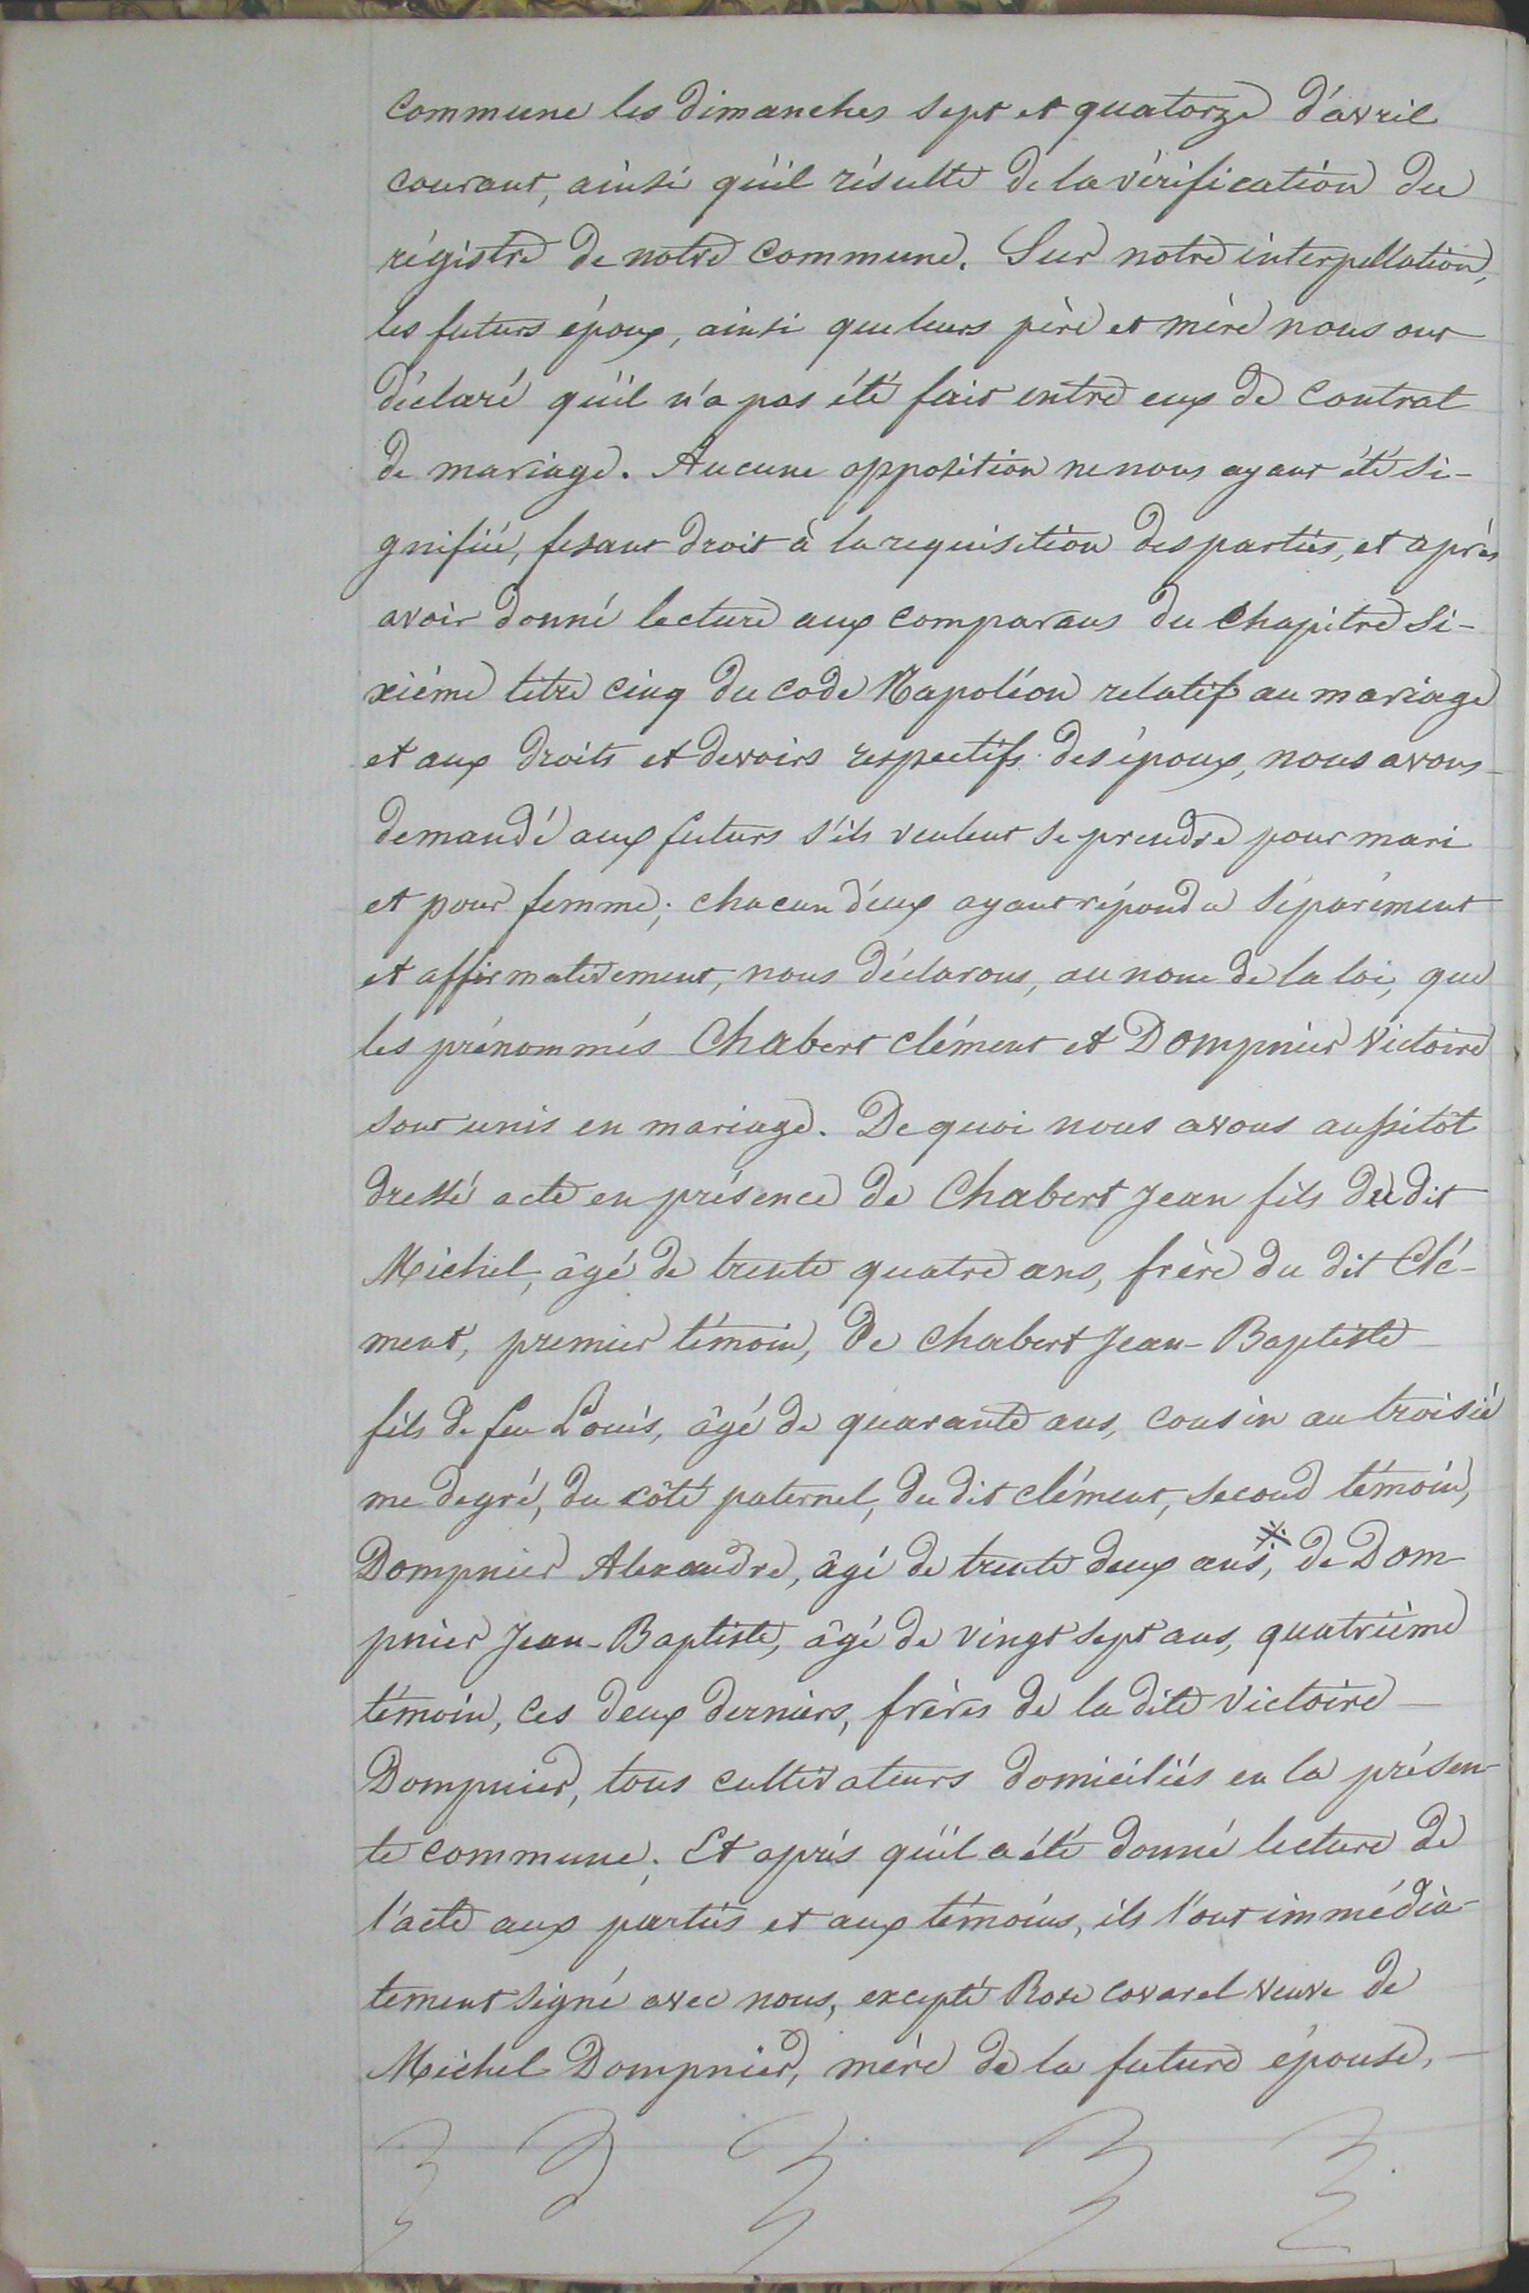 commune les dimanches sept et quatorze d'avril
courant, ainsi qu'il résulte de la vérification du
régistre de notre commune. Sur notre interpellation,
les futurs époux, ainsi que leurs père et mère nous ont
déclaré qu'il n'a pas été fait entre eux de contrat
de mariage. Aucune opposition ne nous ayant été si-
gnifiée, fesant droit à la requisition des parties, et après
avoir donné lecture aux comparans du chapitre si-
xième titre cinq du code Napoléon relatif au mariage
et aux droits et devoirs respectifs des époux, nous avons
demandé aux futurs s'ils veulent se prendre pour mari
et pour femme; chacun d'eux ayant répondu séparément
et affirmativement, nous déclarons, au nom de la loi, que
les prénommés Chabert Clément et Dompnier Victoire
sont unis en mariage. De quoi nous avons aussitôt
dressé acte en présence de Chabert Jean fils du dit
Michel, âgé de trente quatre ans, frère du dit Clé-
ment, premier témoin, de Chabert Jean-Baptiste
fils de feu Louis, âgé de quarante ans, cousin au troisiè
me degré, du côté paternel, du dit clément, second témoin,
Dompnier Alexandre, âgé de trente deux ans, de Dom-
pnier Jean-Baptiste, âgé de vingt sept ans, quatrième
témoin, ces deux derniers, frères de la dite Victoire
Dompnier, tous cultivateurs domiciliés en la présen-
te commune. Et après qu'il a été donné lecture de
l'acte aux parties et aux témoins, ils l'ont immédia-
tement signé avec nous, excepté Rose Covarel veuve de
Michel Dompnier, mère de la future épouse,